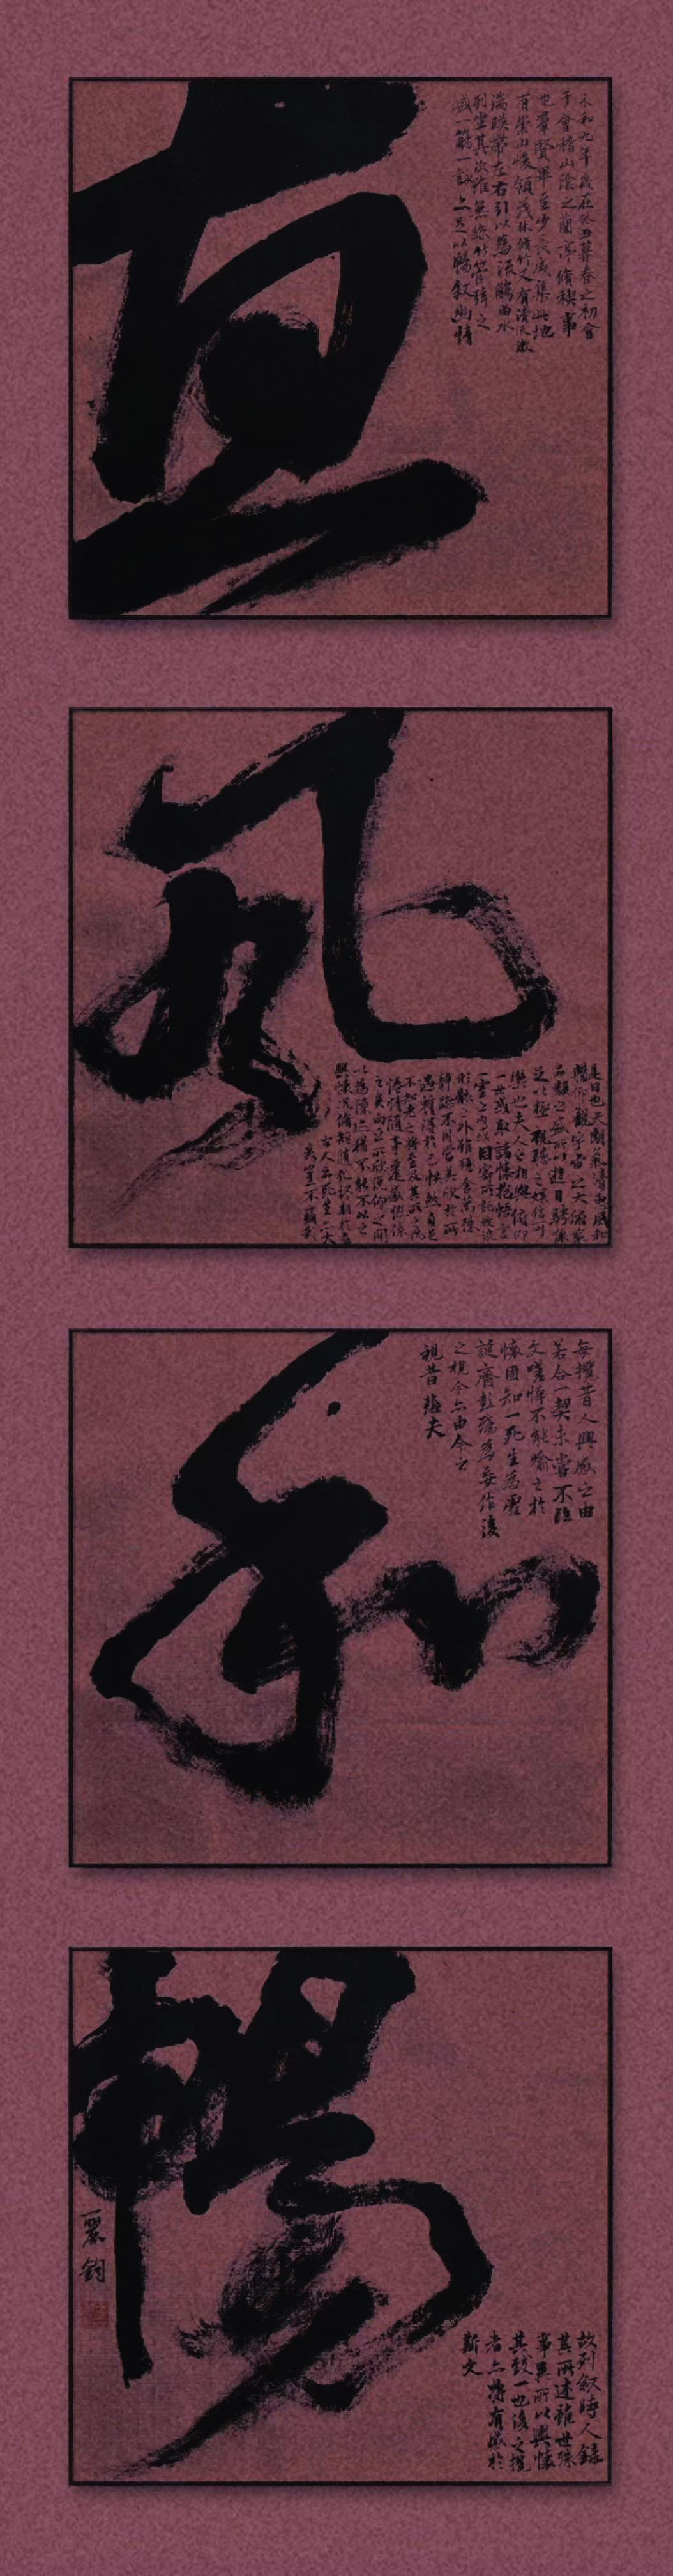 永和九年歲在癸丑暮春之初會
于會稽山陰之蘭亭脩稧事
也羣賢畢至少長咸集此地
有崇山峻領茂林脩竹又有清流激
湍暎帶左右引以為流觴曲水
列坐其次雖無絲竹管絃之
盛一觴一詠亦足以暢敘幽情
惠
風
是日也天朗氣清惠風和
暢仰觀宇宙之大俯察
品類之盛所以遊目騁懷
足以極視聽之娛信可
樂也夫人之相與俯仰
一世或取諸懷抱悟言
一室之內或因寄所託放浪
形骸之外雖趣舍萬殊
靜躁不同當其欣於所
遇暫得於己怏然自足
不知老之將至及其所之既
惓情隨事遷感慨係
之矣向之所欣俛仰之間
以為陳迹猶不能不以之
興懷況脩短隨化終期於盡
古人云死生亦大
矣豈不痛哉
每攬昔人興感之由
若合一契未嘗不臨
文嗟悼不能喻之於
懷固知一死生為虛
誕齊彭殤為妄作後
之視今亦由今之
視昔悲夫
和
暢
故列敘時人錄
其所述雖世殊
事異所以興懷
其致一也後之攬
者亦將有感於
斯文
麗鈞